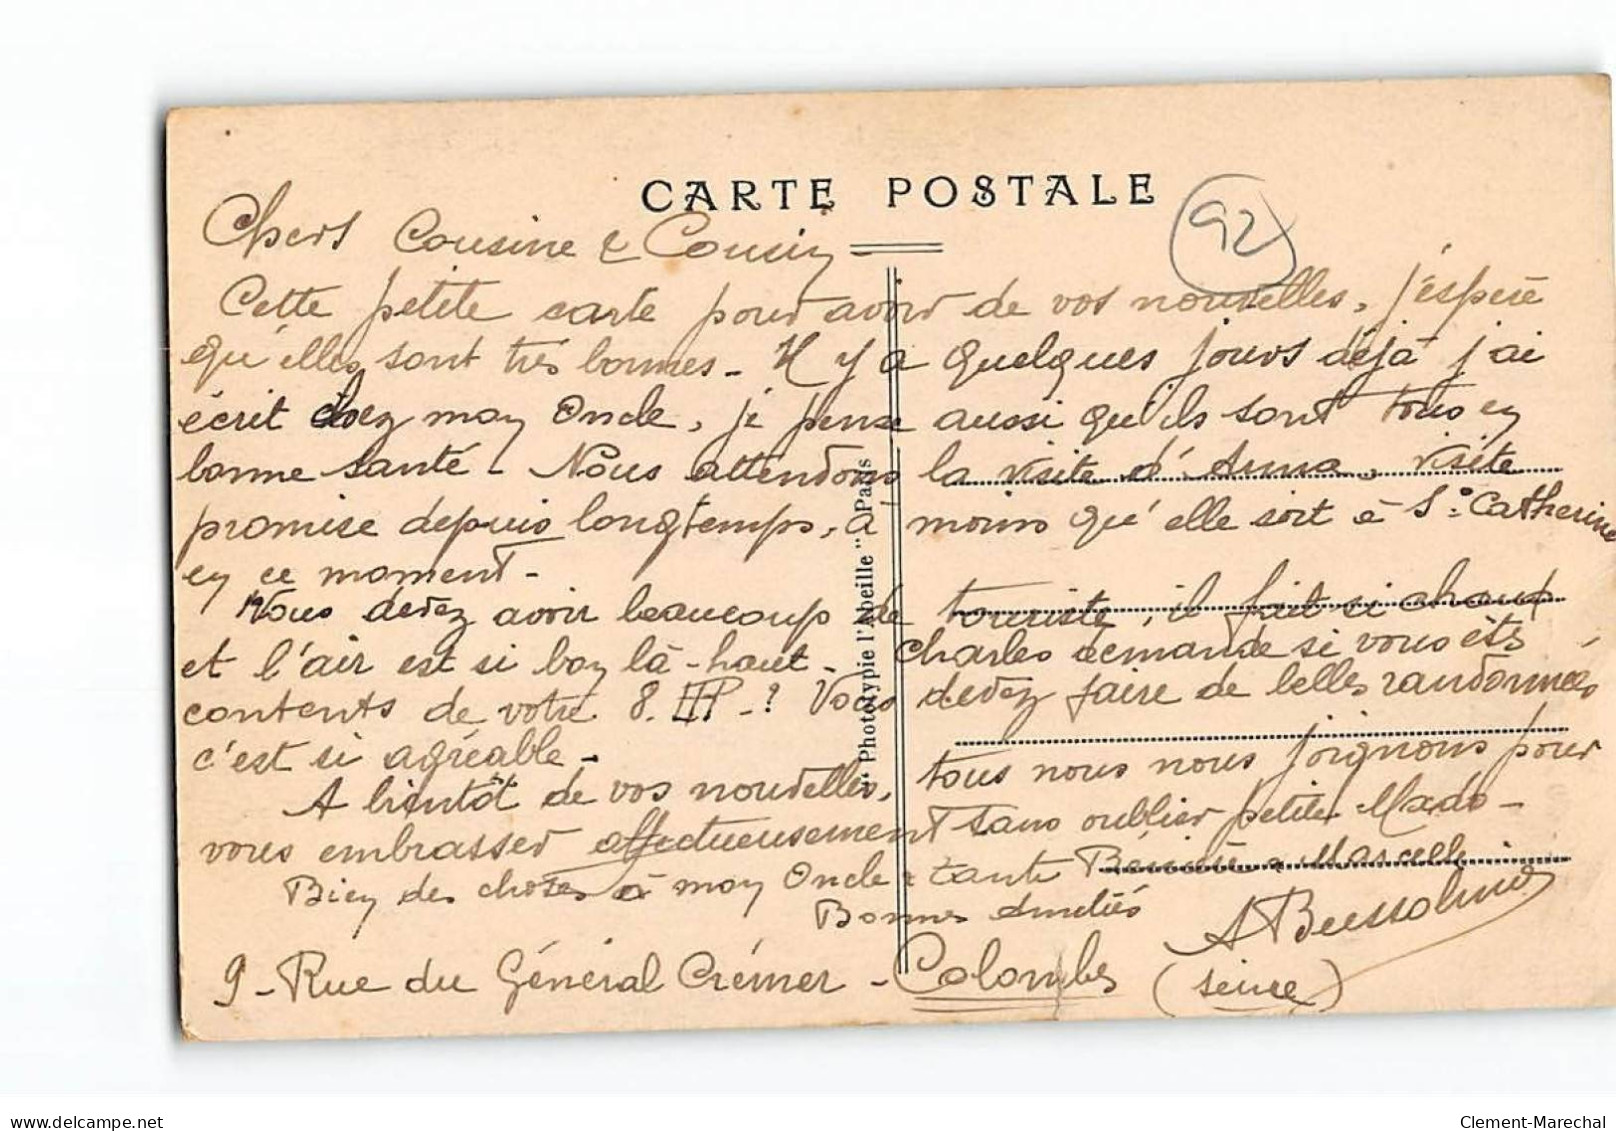 CARTE POSTALE
92
Chers Cousine & Cousin
Cette petite carte pour avoir de vos nouvelles, j'espère
qu'elles sont très bonnes - Il y a quelques jours déjà j'ai
écrit chez mon Oncle, je pense aussi qu'ils sont tous en
bonne santé - Nous attendons la visite d'Anna, visite
promise depuis longtemps, à moins qu'elle soit à Ste Catherine
en ce moment -
Vous devez avoir beaucoup de touriste, il fait si chaud
et l'air est si bon là-haut - Charles demande si vous êts
contents de votre 8. HP - ? Vous devez faire de belles randonnées
c'est si agréable -
A bientôt de vos nouvelles, tous nous nous joignons pour
vous embrasser affectueusement sans oublier petite Mado -
Bien des choses à mon Oncle & tante & Marcelle
Bonnes Amitiés
9 - Rue du Général Crémer - Colombes (Seine)
"Phototypie l'Abeille" Paris
delcampe.net
Clement-Marechal